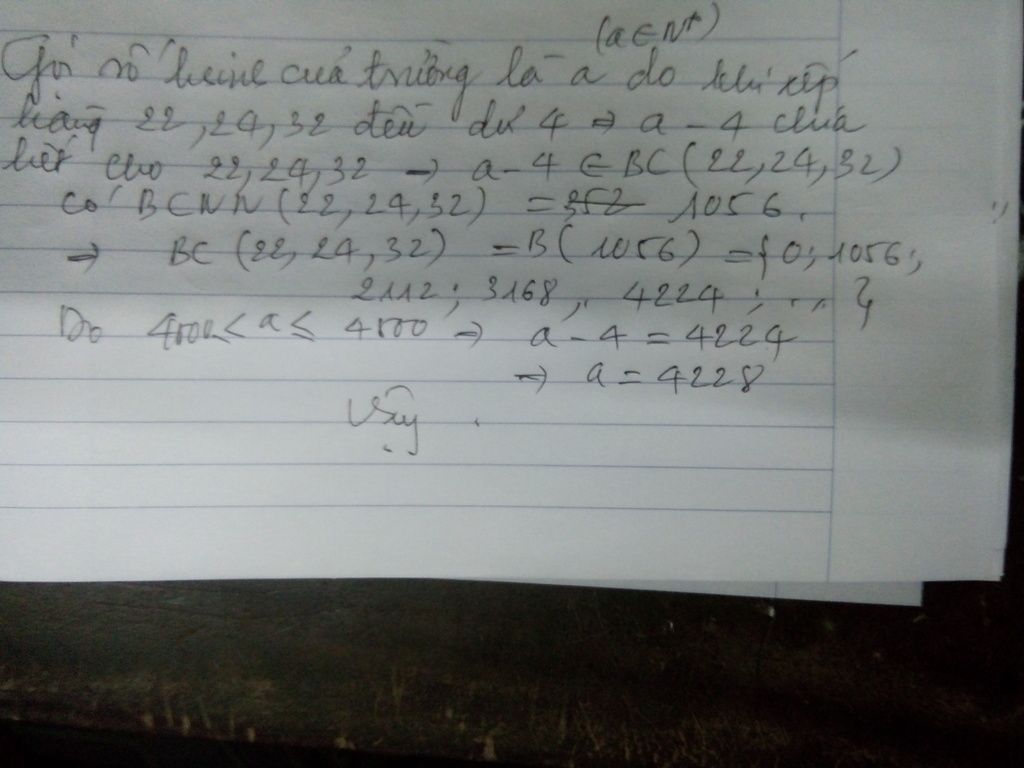 (a ∈ N*)
Gọi số hsinh của trường là a do khi xếp
hàng 22, 24, 32 đều dư 4 ⇒ a - 4 chia
hết cho 22, 24, 32 → a - 4 ∈ BC(22, 24, 32)
có BCNN(22, 24, 32) = 352 1056.
⇒ BC(22, 24, 32) = B(1056) = {0; 1056;
2112; 3168; 4224; ... }
Do 4000 < a ≤ 4500 → a - 4 = 4224
→ a = 4228
Vậy .